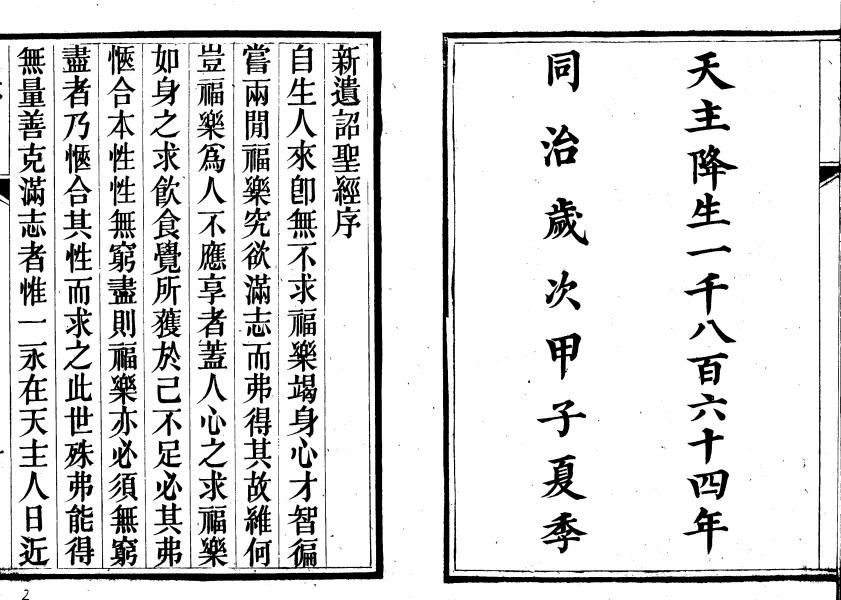 天主降生一千八百六十四年
同治歲次甲子夏季
新遺詔聖經序
自生人來卽無不求福樂竭身心才智徧
嘗兩閒福樂究欲滿志而弗得其故維何
豈福樂爲人不應享者蓋人心之求福樂
如身之求飲食覺所獲於己不足必其弗
愜合本性性無窮盡則福樂亦必須無窮
盡者乃愜合其性而求之此世殊弗能得
無量善克滿志者惟一永在天主人日近
2